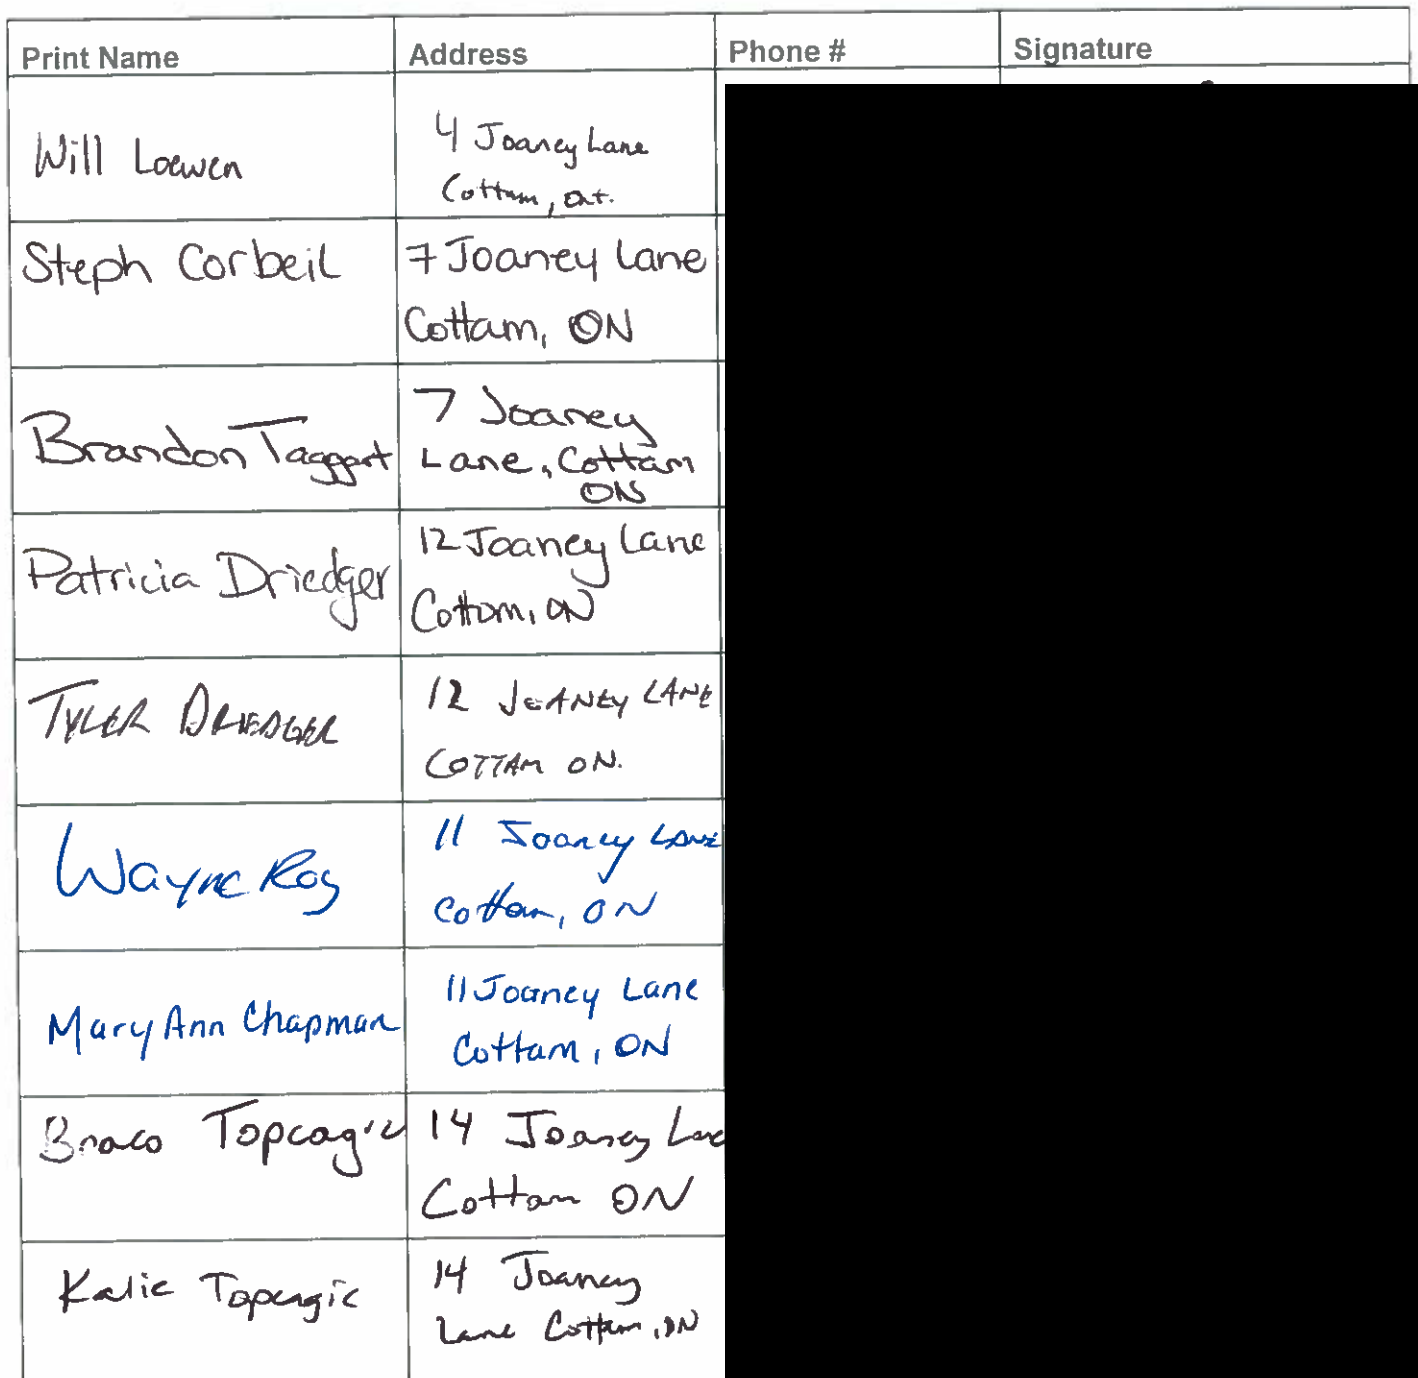 Print Name Address Phone # Signature
Will Loewen
4 Joaney Lane
Cottam, Ont.
Steph Corbeil
7 Joaney Lane
Cottam, ON
Brandon Taggart
7 Joaney
Lane, Cottam
ON
Patricia Driedger
12 Joaney Lane
Cottam, ON
TYLER DRIEDGER
12 JOANEY LANE
COTTAM ON.
Wayne Roy
11 Joaney Lane
Cottam, ON
Mary Ann Chapman
11 Joaney Lane
Cottam, ON
Braco Topcagic
14 Joaney Lane
Cottam ON
Kalie Topcagic
14 Joaney
Lane Cottam, ON